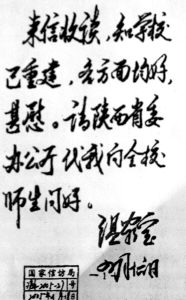 来信收读，知学校
已重建，各方面均好，
甚慰。请陕西省委
办公厅代我向全校
师生问好。
温家宝
国家信访局